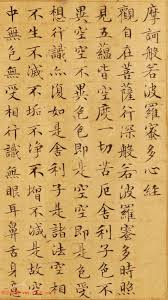 摩訶般若波羅蜜多心經
觀自在菩薩行深般若波羅蜜多時照
見五蘊皆空度一切苦厄舍利子色不
異空空不異色色即是空空即是色受
想行識亦復如是舍利子是諸法空相
不生不滅不垢不淨不增不減是故空
中無色無受想行識無眼耳鼻舌身意